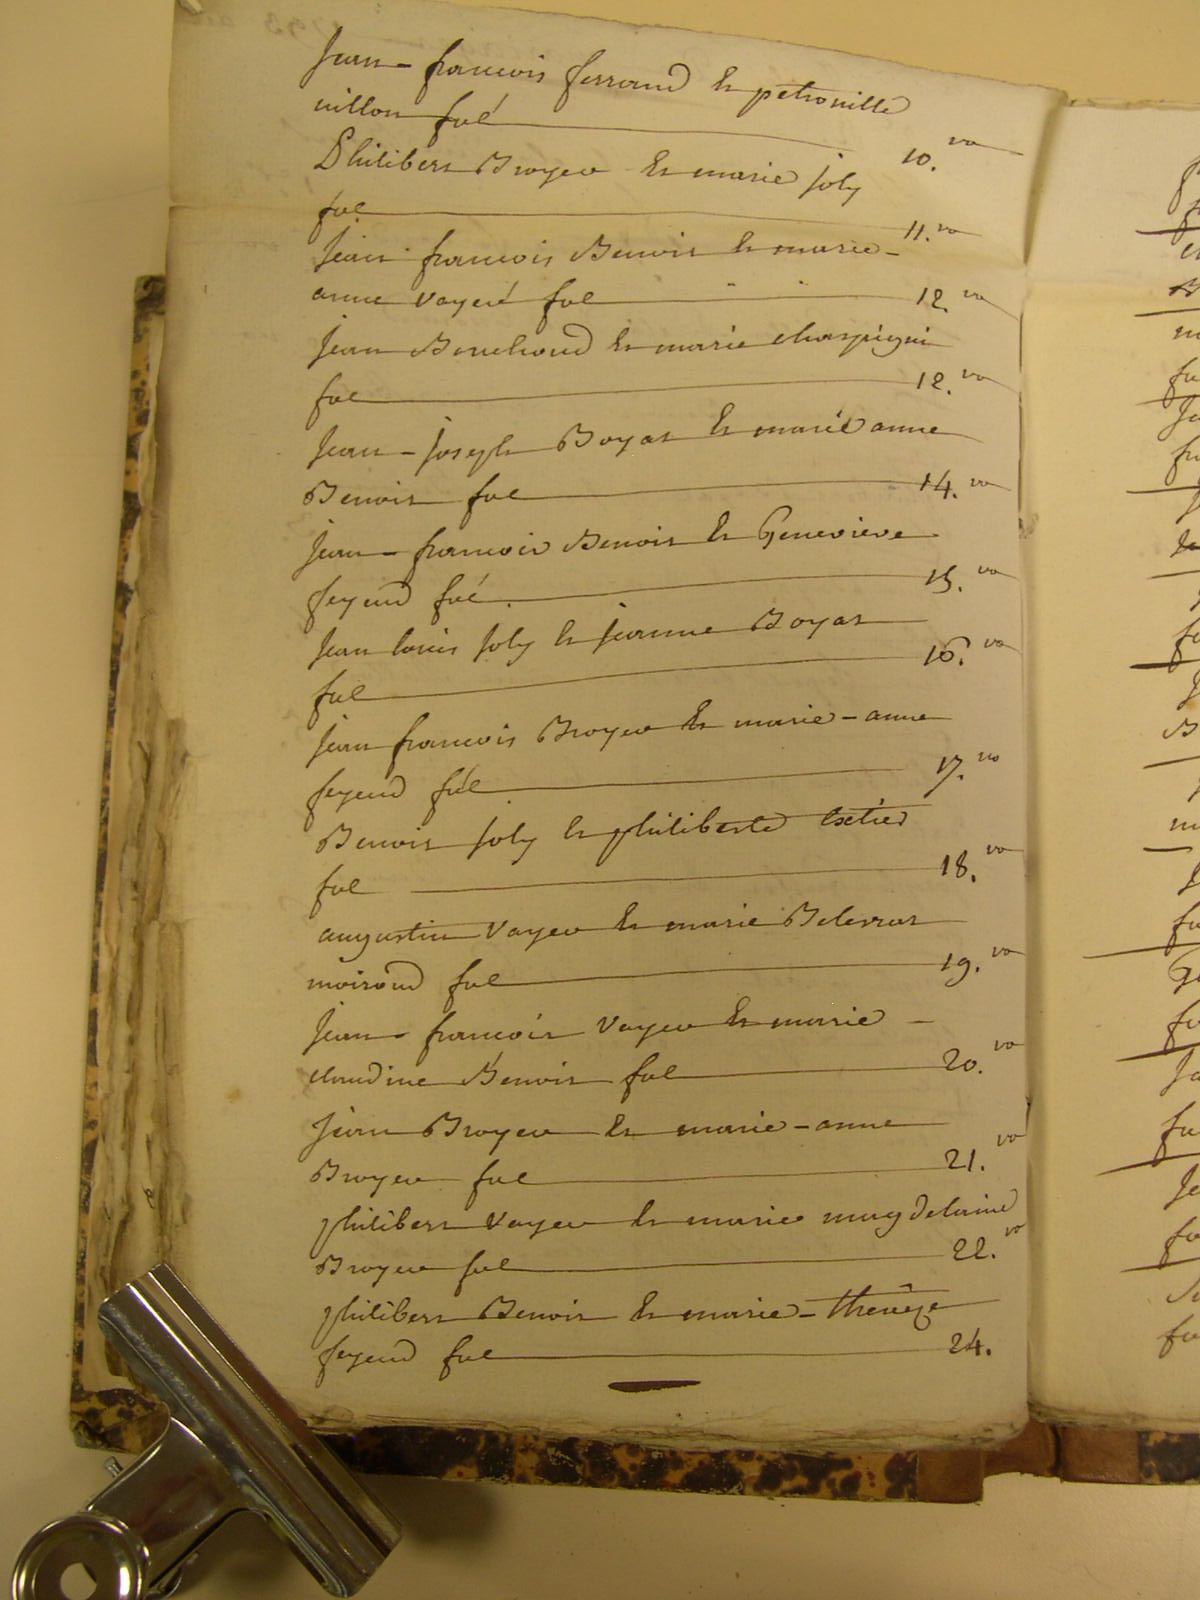 Jean-francois ferraud Et petronille
uillon fol
10. vo
Philibert Broyer Et marie joly
fol
11. vo
Jean francois Benoit Et marie-
anne voyer fol 12. vo
jean Bouchoud Et marie
fol 12. vo
Jean-joseph Boyat Et marie anne
Benoit fol 14. vo
jean-francois Benoit Et Genevieve
feyeud fol 15. vo
Jean louis joly Et jeanne Boyat
fol 16. vo
jean francois Broyer Et marie-anne
feyeud fol 17. vo
Benoit joly Et philiberte
fol 18. vo
augustin voyer Et marie
moiroud fol 19. vo
Jean-francois voyer Et marie-
claudine Benoit fol 20. vo
jean Broyer Et marie-anne
Broyer fol 21. vo
philibert voyer Et marie magdelaine
Broyer fol 22. vo
philibert Benoit Et marie-
feyeud fol 24.